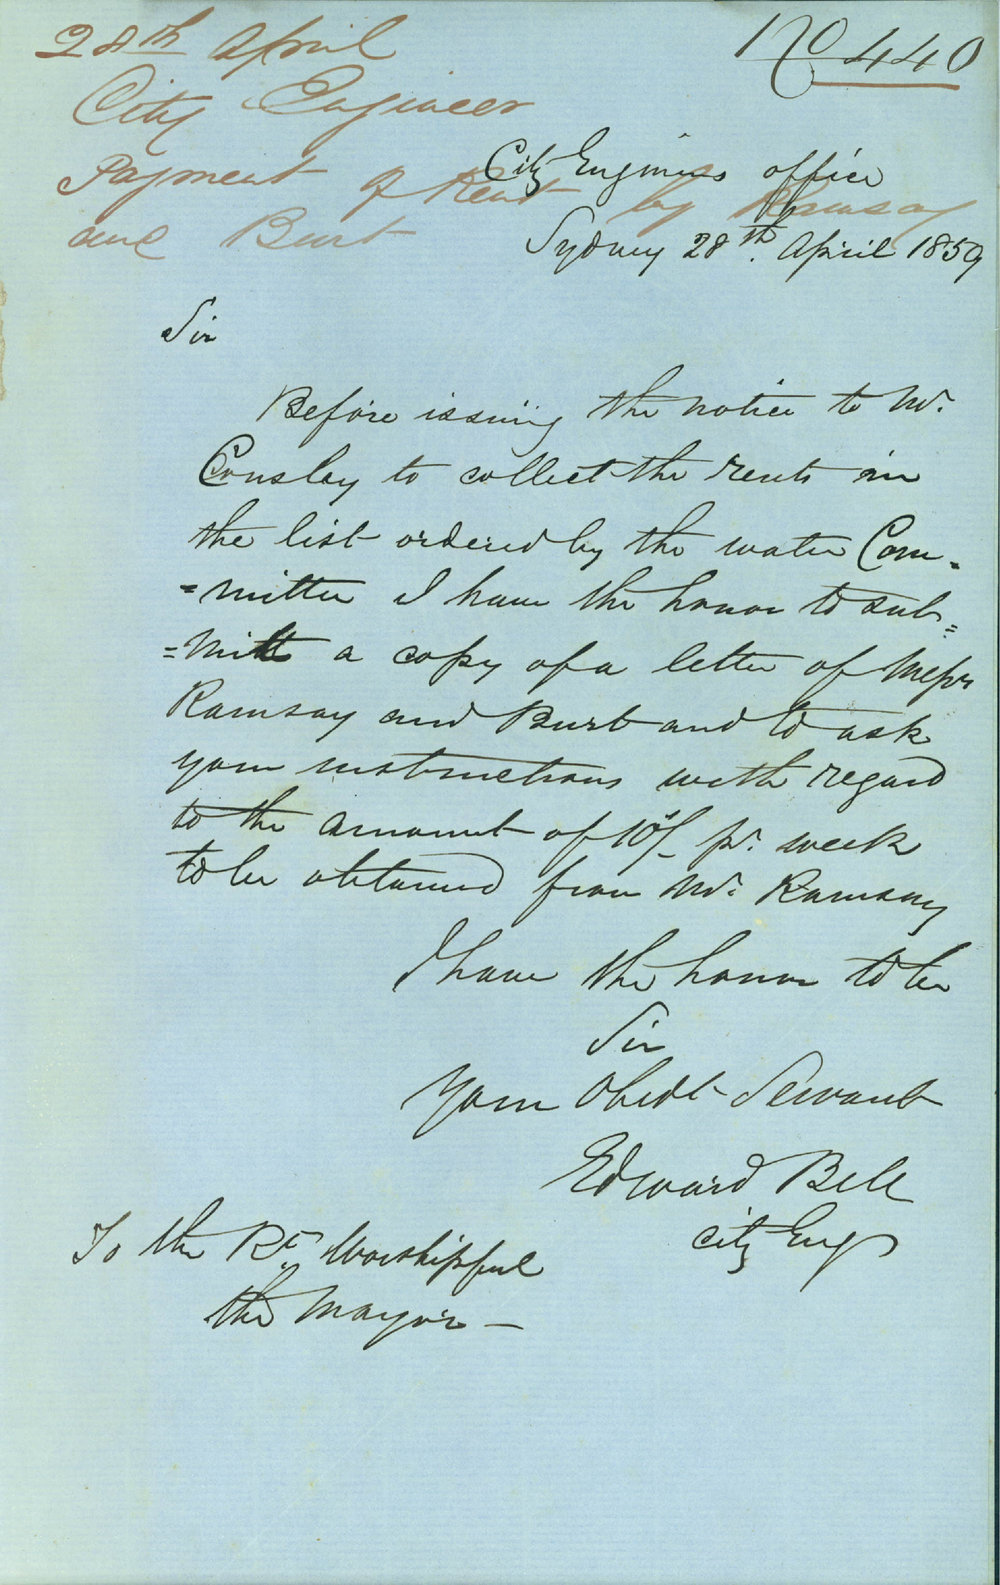 28th April
City Engineer
Payment of Rent by Ramsay
and Burt
No 440
City Engineers office
Sydney 28th. April 1859
Sir
Before issuing the notice to Mr.
Consley to collect the rents in
the list ordered by the water Com=
=mittee I have the honor to sub=
=mit a copy of a letter of Messrs
Ramsay and Burt and to ask
your instructions with regard
to the amount of 10/- pr. week
to be obtained from Mr. Ramsay
I have the honor to be
Sir
Your Obedt Servant
Edward Bell
City Engr
To the Rt. Worshipful
the Mayor —